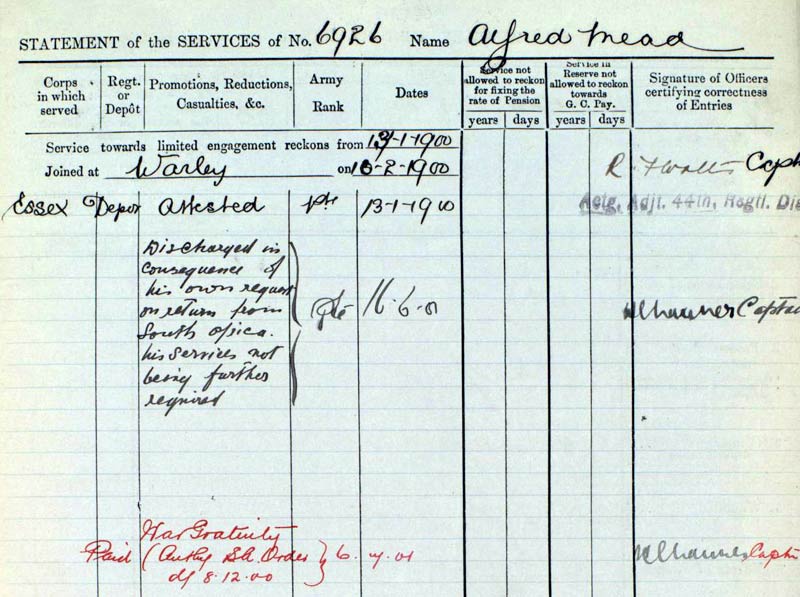 STATEMENT of the SERVICES of No. 6926 Name Alfred Mead
Corps in which served
Regt. or Depôt
Promotions, Reductions, Casualties, &c.
Army Rank
Dates
Service not allowed to reckon for fixing the rate of Pension
years days
Service in Reserve not allowed to reckon towards G. C. Pay.
years days
Signature of Officers certifying correctness of Entries
Service towards limited engagement reckons from 13-1-1900
Joined at Warley on 16-2-1900
Capt
Essex Depot Attested Pte 13-1-1900
Actg. Adjt. 44th, Regtl. Dis
Discharged in
consequence of
his own request
on return from
South Africa.
his services not
being further
required
Pte 11-6-01
Capta
War Gratuity
Paid (Authy S.A. Order 6.
d/ 8.12.00
Capt